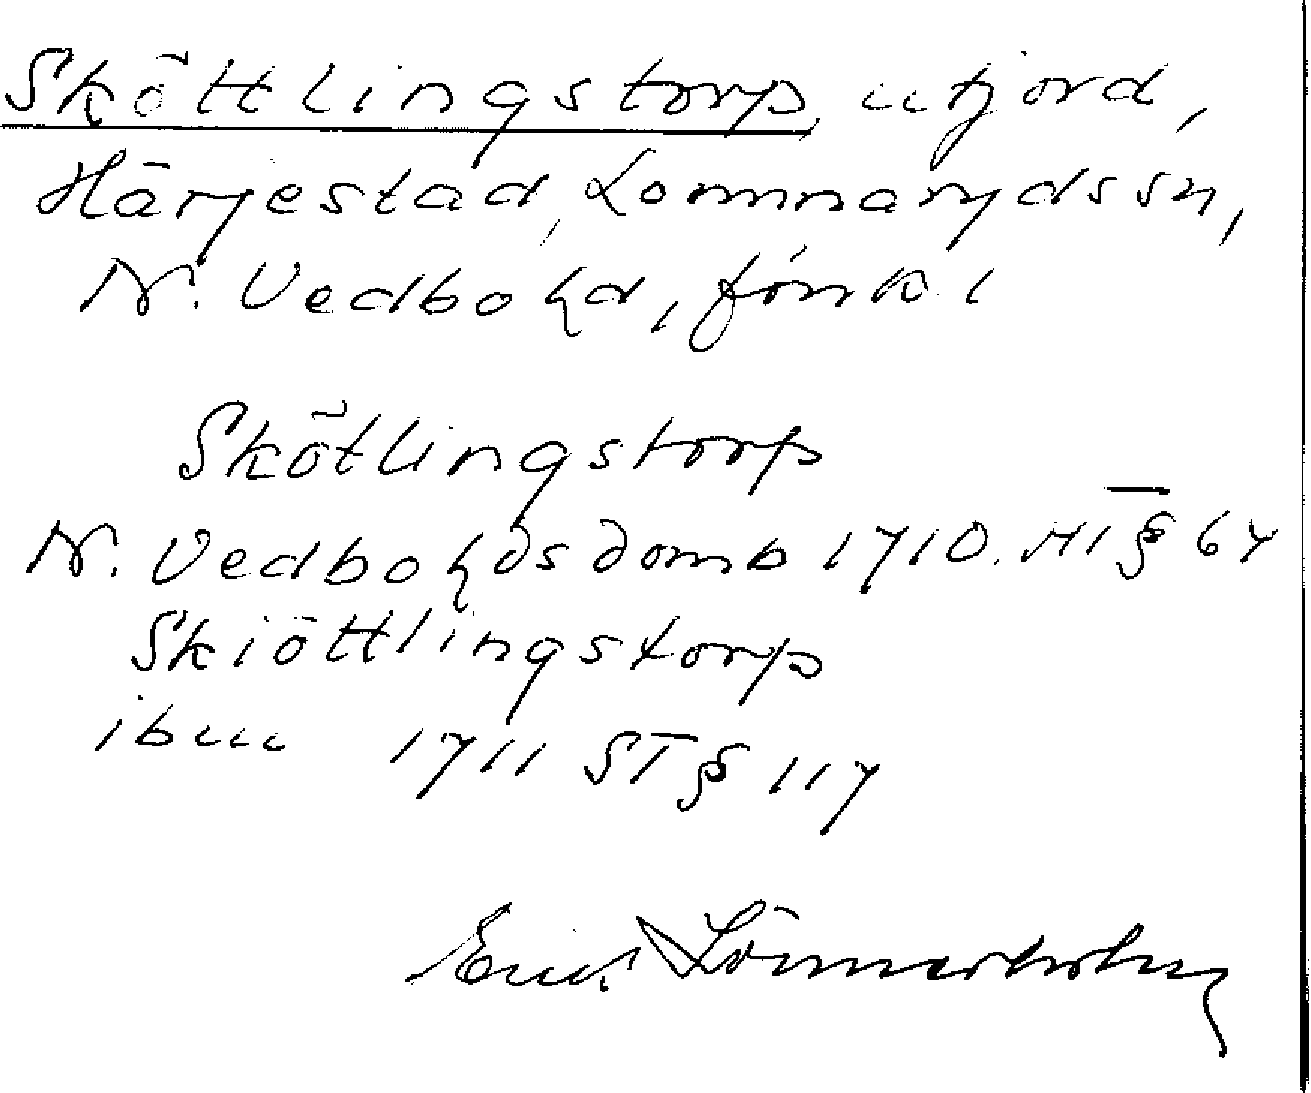 Sköttlingstorp, utjord,
Härjestad, Lommaryds sn,
N. Vedbo hd, Jönk. l
Skötlingstorp
N. Vedbo hds domb 1710. HT § 67
Skiöttlingstorp
ibm 1711 ST § 117
Erik Lönnerholm